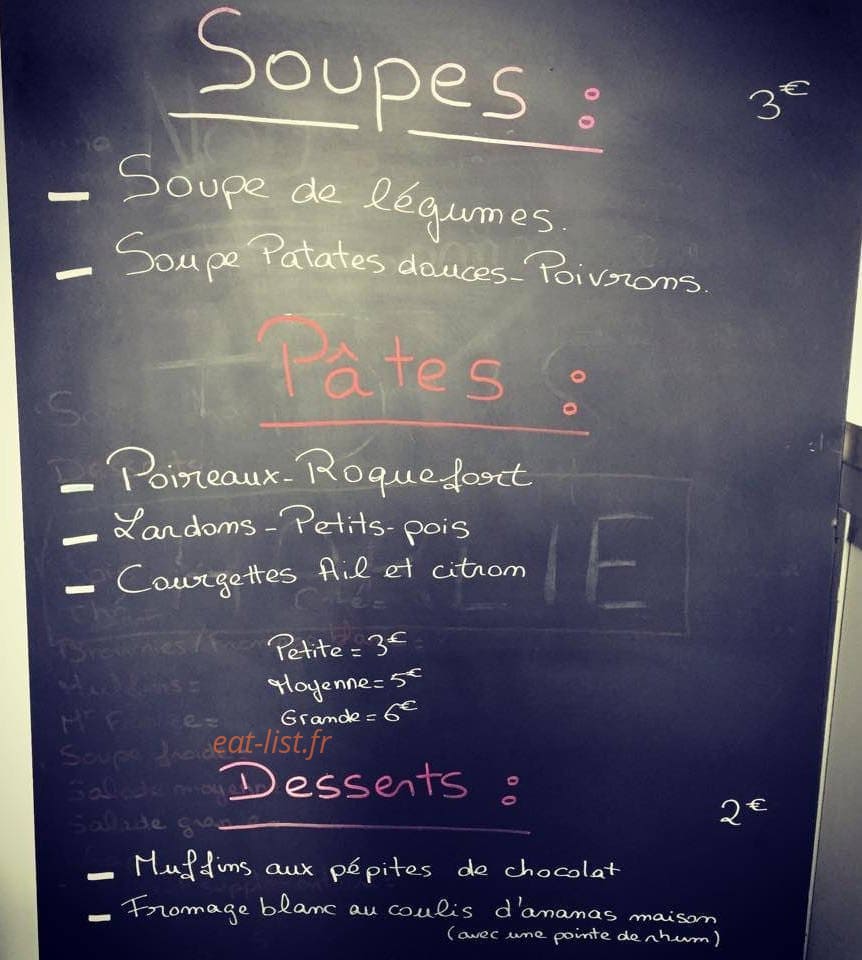 Soupes :
3€
- Soupe de légumes.
- Soupe Patates douces - Poivrons.
Pâtes :
- Poireaux - Roquefort
- Lardons - Petits-pois
- Courgettes Ail et citron
Petite = 3€
Moyenne = 5€
Grande = 6€
eat-list.fr
Desserts :
2€
- Muffins aux pépites de chocolat
- Fromage blanc au coulis d'ananas maison
(avec une pointe de rhum)